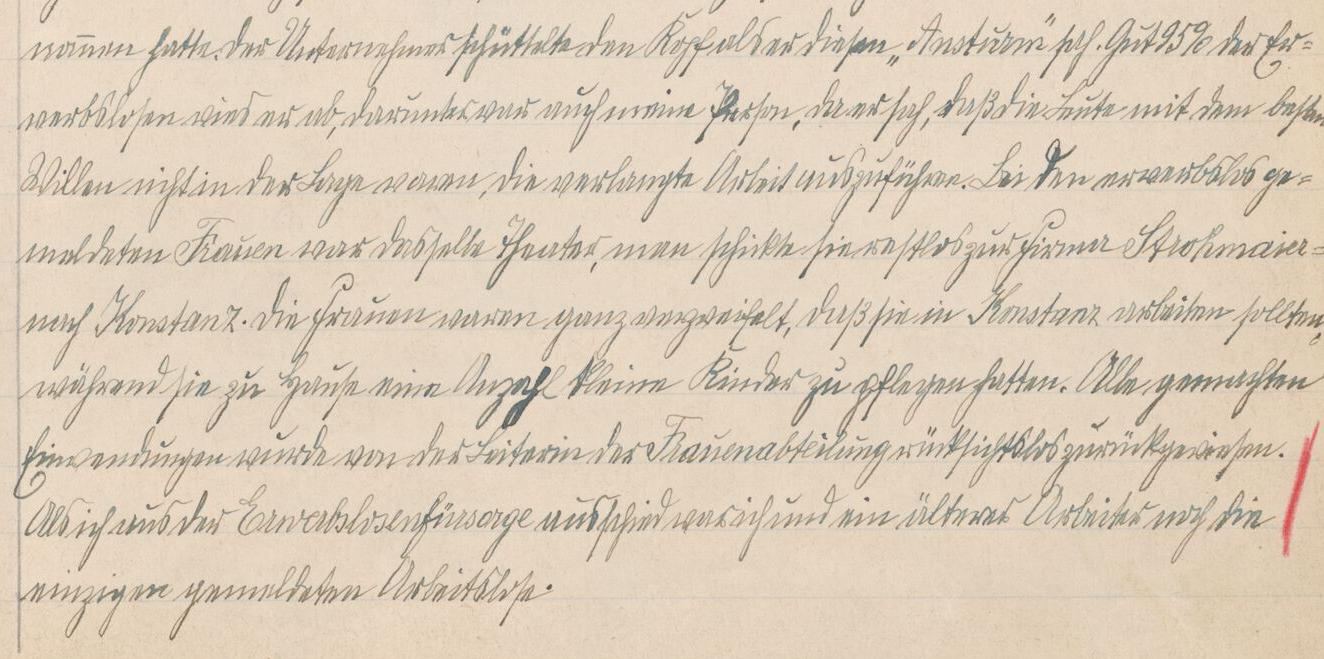 nom̄en hatte. Der Unternehmer schüttelte den Kopf als er diesen „Ansturm" sah. Gut 95% der Er=
werbslosen wies er ab, darunter war auch meine Person, da er sah, daß die Leute mit dem besten
Willen nicht in der Lage waren, die verlangte Arbeit auszuführen. Bei den erwerbslos ge=
meldeten Frauen war dasselbe Theater, man schickte sie restlos zur Firma Strohmaier=
nach Konstanz. Die Frauen waren ganz verzweifelt, daß sie in Konstanz arbeiten sollten,
während sie zu Hause eine Anzahl kleine Kinder zu pflegen hatten. Alle gemachten
Einwendungen wurde von der Leiterin der Frauenabteilung rücksichtslos zurückgewiesen.
Als ich aus der Erwerbslosenfürsorge ausschied war ich und ein älterer Arbeiter noch die
einzigen gemeldeten Arbeitslose.